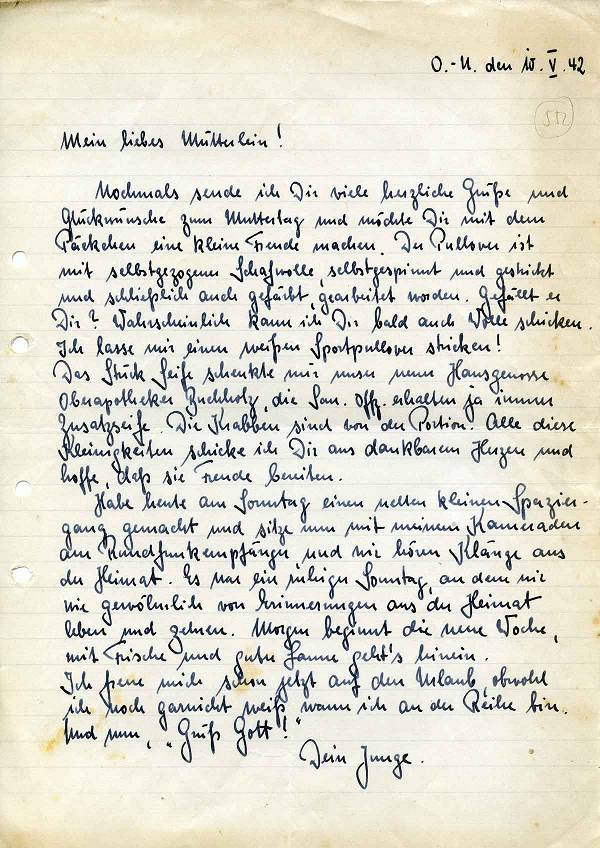 O.-U. den 10. V. 42
552
Mein liebes Mutterlein!
Nochmals sende ich Dir viele herzliche Grüße und
Glückwünsche zum Muttertag und möchte Dir mit dem
Päckchen eine kleine Freude machen. Der Pullover ist
mit selbstgezogener Schafwolle, selbstgespinnt und gestrickt
und schließlich auch gefärbt, gearbeitet worden. Gefällt er
Dir? Wahrscheinlich kann ich Dir bald auch Wolle schicken.
Ich lasse mir einen weißen Sportpullover stricken!
Das Stück Seife schenkte mir unser neuer Hausgenosse
Oberapotheker Buchholz, die San. Offz. erhalten ja immer
Zusatzseife. Die Krabben sind von der Portion. Alle diese
Kleinigkeiten schicke ich Dir aus dankbarem Herzen und
hoffe, daß sie Freude bereiten.
Habe heute am Sonntag einen netten kleinen Spazier-
gang gemacht und sitze nun mit meinem Kameraden
am Rundfunkempfänger, und wir hören Klänge aus
der Heimat. Es war ein ruhiger Sonntag, an dem wir
wie gewöhnlich von Erinnerungen aus der Heimat
leben und zehren. Morgen beginnt die neue Woche,
mit Frische und guter Laune geht's hinein.
Ich freue mich schon jetzt auf den Urlaub, obwohl
ich noch garnicht weiß, wann ich an der Reihe bin.
Und nun, "Grüß Gott!"
Dein Junge.